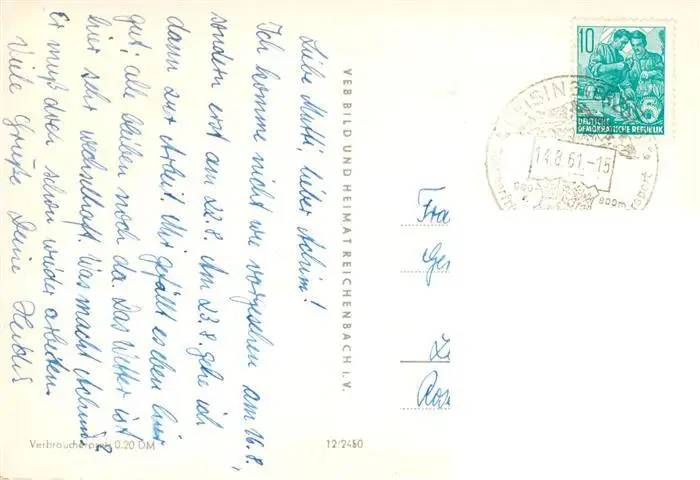 Liebe Mutti, lieber Achim!
Ich komme nicht wie vorgesehen am 16.8,
sondern erst am 22.8. Am 23.8. gehe ich
dann zur Arbeit. Mir gefällt es eben hier
gut, alle bleiben noch da. Das Wetter ist
hier sehr wechselhaft. Was macht Achim?
Er muß doch schon wieder arbeiten.
Viele Grüße Deine
VEB BILD UND HEIMAT REICHENBACH I. V.
10
5
DEUTSCHE
DEMOKRATISCHE REPUBLIK
14.8.61.-15
800m
Fra
Ge
Verbraucherpreis 0.20 DM
12/2450